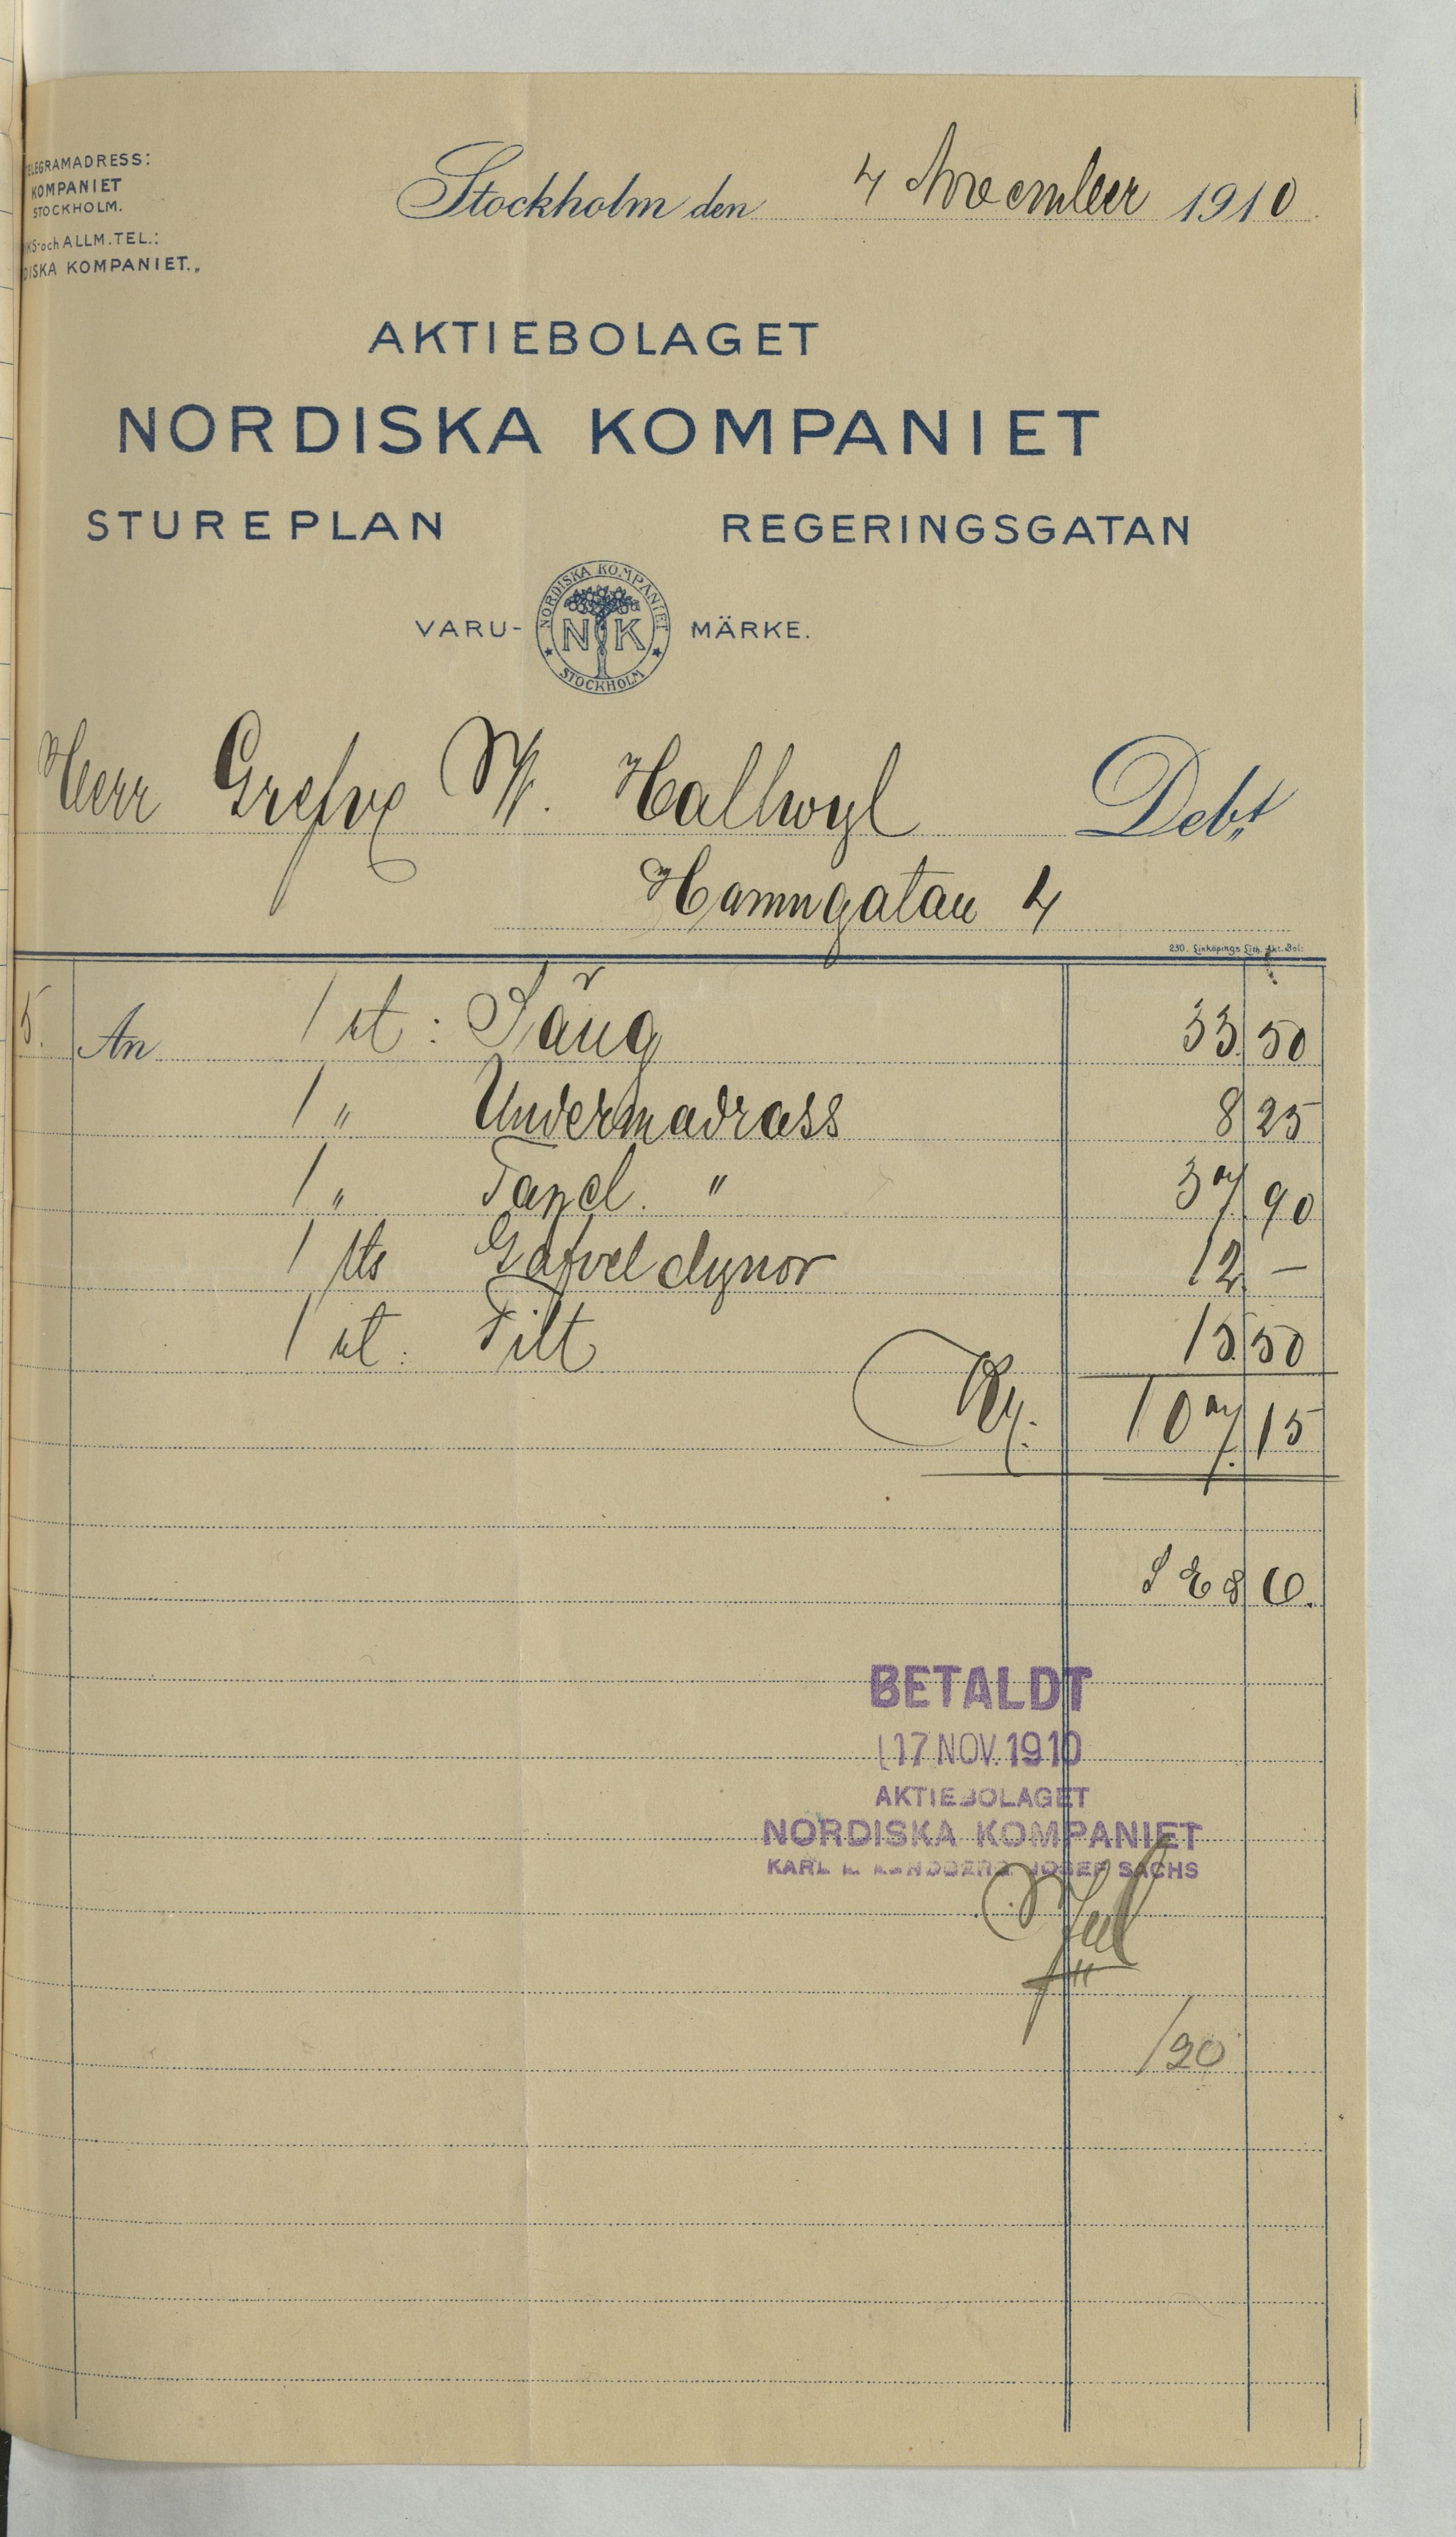 TELEGRAMADRESS:
KOMPANIET
STOCKHOLM.
KS- och ALLM. TEL.:
DISKA KOMPANIET."
Stockholm den 4 November 1910
AKTIEBOLAGET
NORDISKA KOMPANIET
STUREPLAN REGERINGSGATAN
VARU- NORDISKA KOMPANIET NK STOCKHOLM MÄRKE.
Herr Grefve W. Hallwyl Debt
Hamngatan 4
230. Linköpings Lith. Akt. Bol:
5. An 1 st: Säng 33.50
1 " Undermadrass 8 25
1 " Tapel. " 37.90
1 Gafveldynor 12. —
1 st: Filt 15.50
Kr. 107.15
BETALDT
17 NOV. 1910
AKTIEBOLAGET
NORDISKA KOMPANIET
KARL JOSEF SACHS
/20